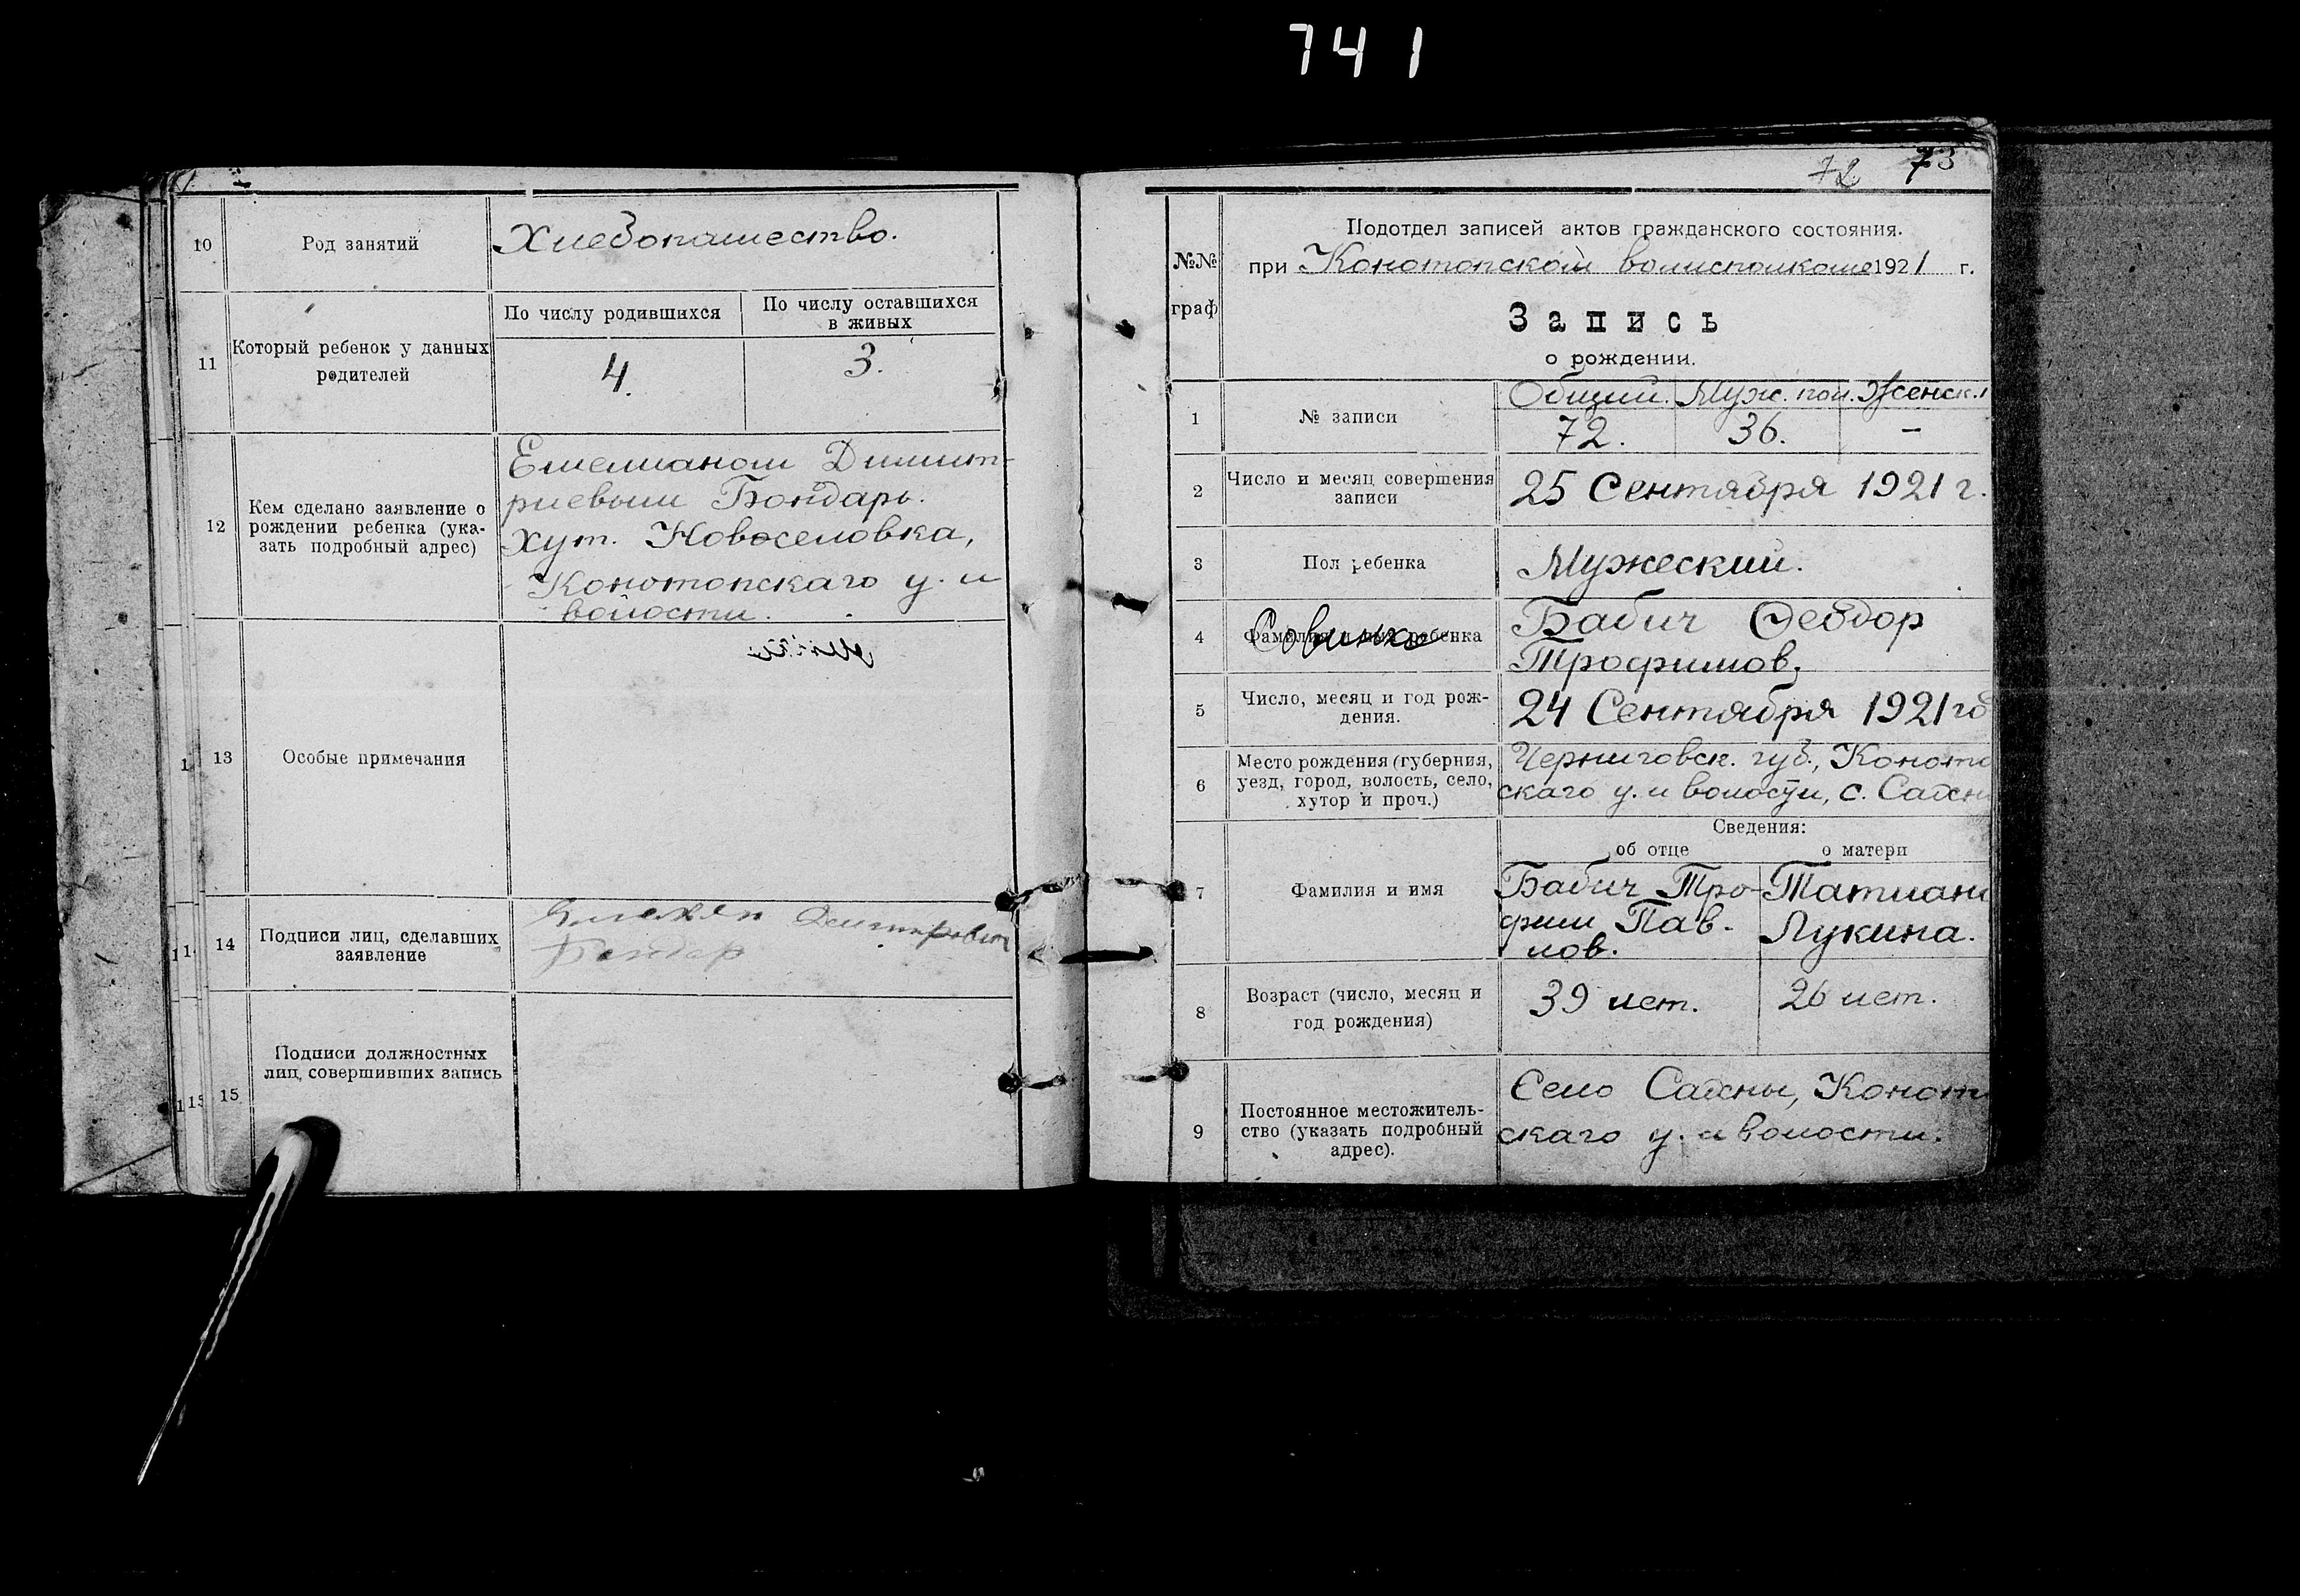 741
10
Род занятий
Хлебопашество.
11
Который ребенок у данных
родителей
По числу родившихся
По числу оставшихся
в живых
4.
3.
12
Кем сделано заявление о
рождении ребенка (ука-
зать подробный адрес)
Емелианом Димит-
риевым Бондарь.
Хут. Новоселовка,
Конотопскаго у. и
волости.
13
Особые примечания
14
Подписи лиц, сделавших
заявление
Бондар
15
Подписи должностных
лиц, совершивших запись
72 73
№№
граф
Подотдел записей актов гражданского состояния.
при Конотопском волисполкоме 1921 г.
Запись
о рождении.
1
№ записи
Общий. Муж. пол. Женск.
72. 36. –
2
Число и месяц совершения
записи
25 Сентября 1921 г.
3
Пол ребенка
Мужеский.
4
Фамилия и имя ребенка
Бабич Ѳеодор
Трофимов.
5
Число, месяц и год рож-
дения.
24 Сентября 1921 го
6
Место рождения (губерния,
уезд, город, волость, село,
хутор и проч.)
Черниговск. губ., Коното
скаго у. и волости, с.
Сведения:
об отце
о матери
7
Фамилия и имя
Бабич Тро-
фим Пав-
лов.
Татиана
Лукина.
8
Возраст (число, месяц и
год рождения)
39 лет.
26 лет.
9
Постоянное местожитель-
ство (указать подробный
адрес).
Село Конотп
скаго у. и волости.